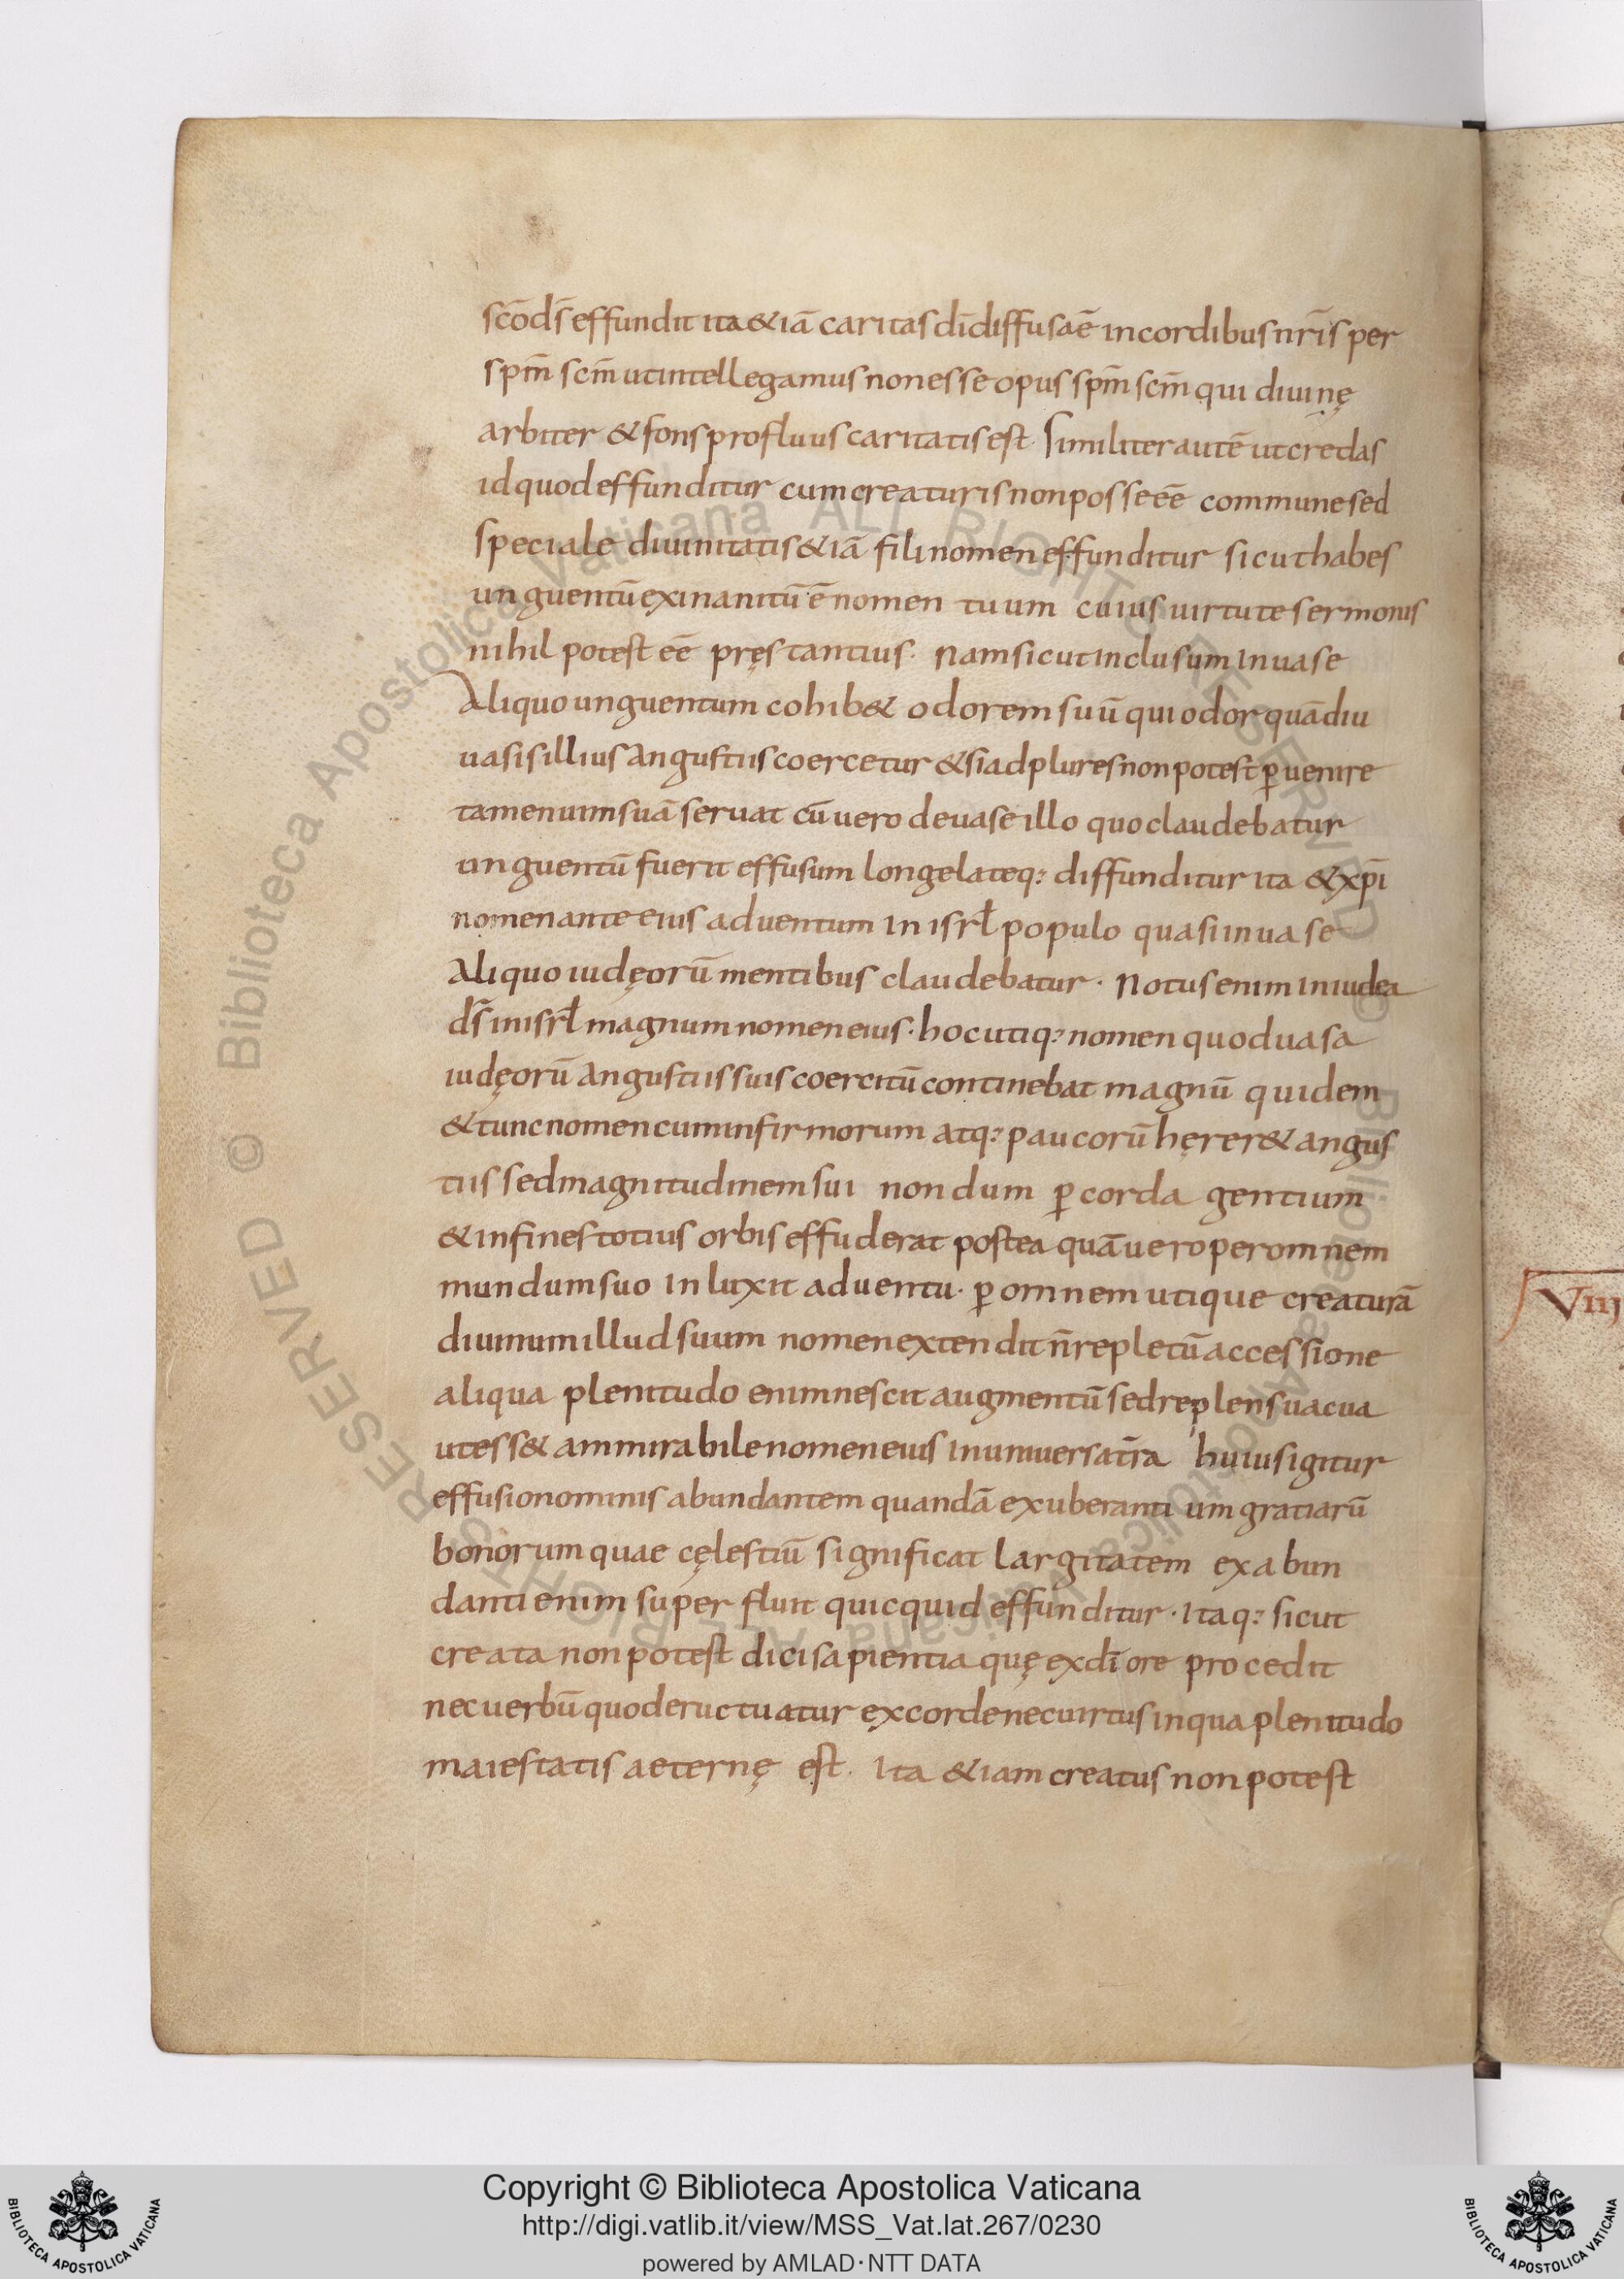 sc̄o ds̄ effundit ita & iā caritas dī diffusa ē in cordibus nr̄is per
sp̄m sc̄m ut intellegamus non esse opus sp̄m sc̄m qui diuinę
arbiter & fons profluus caritatis est. Similiter autē ut credas
id quod effunditur cum creaturis non posse eē commune sed
speciale diuinitatis & iā fili nomen effunditur sicut habes
unguentū exinanitū ē nomen tuum cuius uirtute sermonis
nihil potest eē pręstantius. Nam sicut inclusum in uase
Aliquo unguentum cohib& odorem suū qui odor quādiu
uasis illius Angustiis coercetur & si ad plures non potest p̄uenire
tamen uim suā seruat cū uero de uase illo quo claudebatur
unguentū fuerit effusum longe lateq: diffunditur ita & xp̄i
nomen ante eius aduentum in isrł populo quasi in uase
Aliquo iudęorū mentibus claudebatur. Notus enim in iudea
ds̄ in isrł magnum nomen eius. hoc utiq: nomen quod uasa
iudęorū Angustiis suis coercitū continebat magnū quidem
& tunc nomen cum infirmorum atq: paucorū hęrer& angus
tiis sed magnitudinem sui nondum p̄ corda gentium
& in fines totius orbis effuderat postea quā uero per omnem
mundum suo inluxit aduentu. p̄ omnem utique creaturā
diuinum illud suum nomen extendit n̄ repletū accessione
aliqua plenitudo enim nescit augmentū sed replens uacua
ut ess& ammirabile nomen eius in uniuersa tr̄a huius igitur
effusio nominis abundantem quandā exuberantium gratiarū
bonorumquae cęlestiū significat largitatem ex abun
danti enim superfluit quicquid effunditur. Itaq: sicut
creata non potest dici sapientia quę ex dī ore procedit
nec uerbū quod eructuatur ex corde nec uirtus in qua plenitudo
maiestatis aeternę est. Ita & iam creatus non potest
VIII
© Biblioteca Apostolica Vaticana ALL RIGHTS RESERVED © Biblioteca Apostolica Vaticana ALL RIGHTS RESERVED
Copyright © Biblioteca Apostolica Vaticana
http://digi.vatlib.it/view/MSS_Vat.lat.267/0230
powered by AMLAD·NTT DATA
BIBLIOTECA APOSTOLICA VATICANA
BIBLIOTECA APOSTOLICA VATICANA